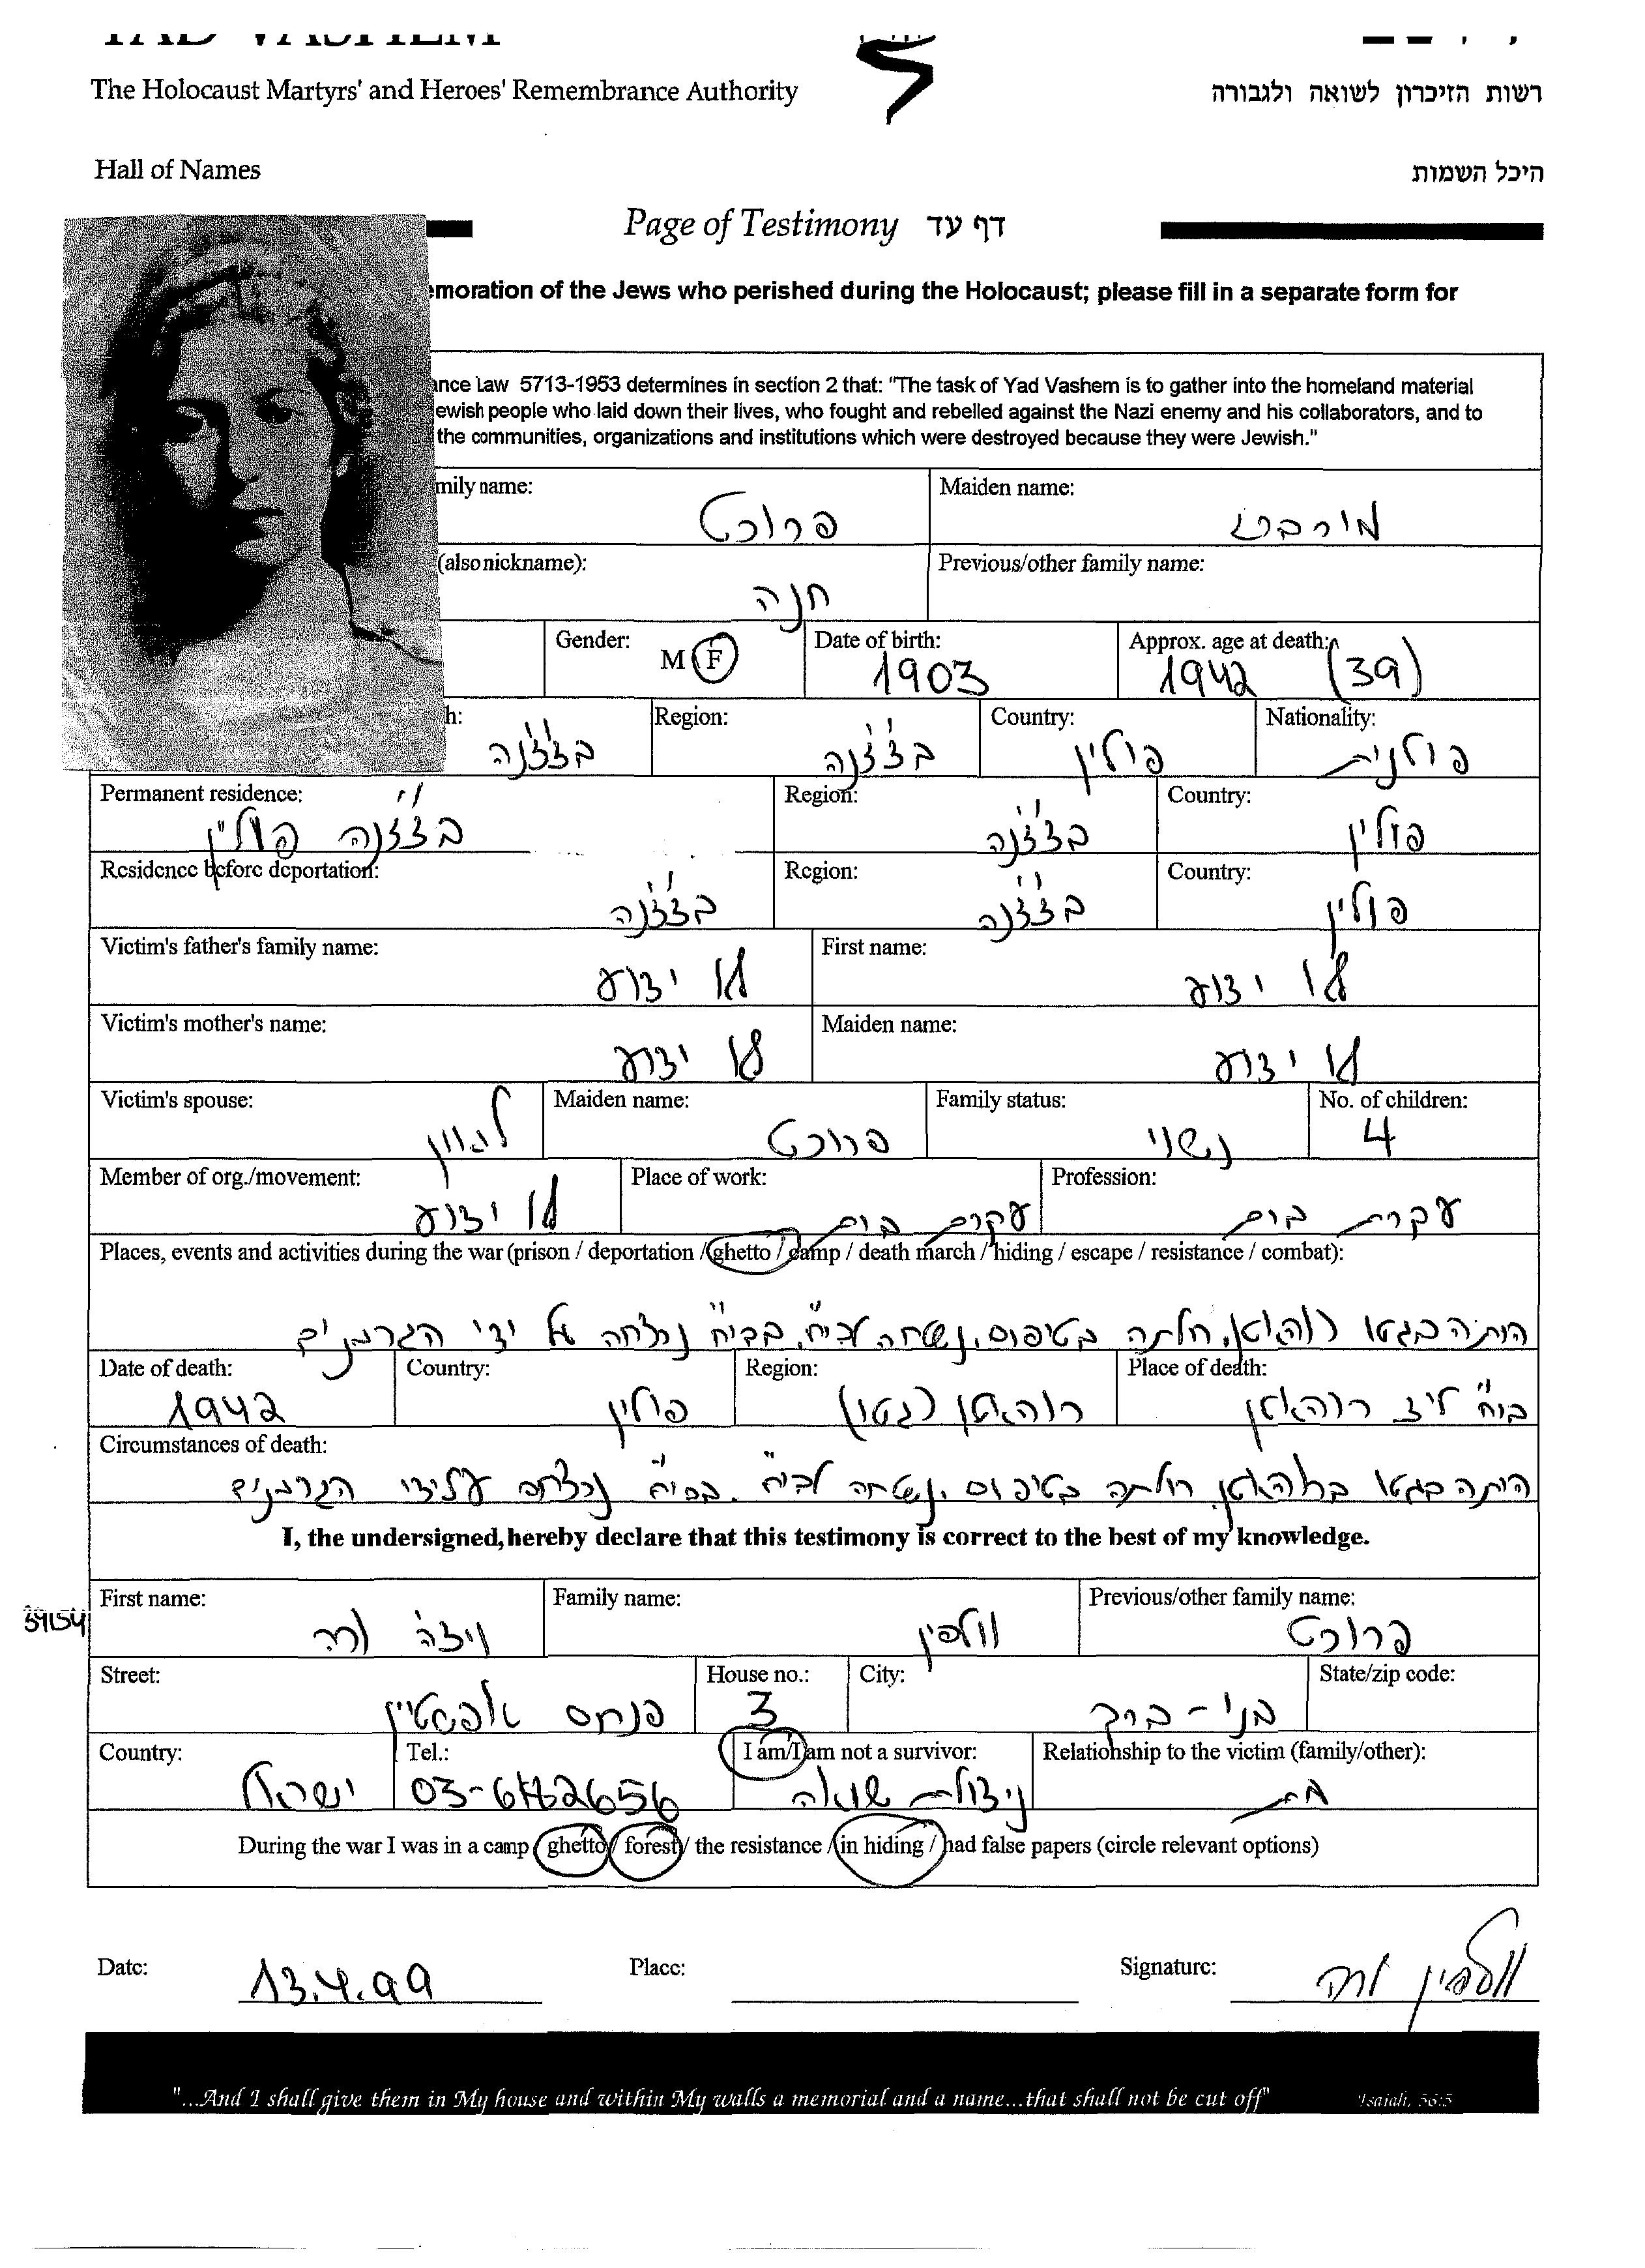 The Holocaust Martyrs' and Heroes' Remembrance Authority רשות הזיכרון לשואה ולגבורה
Hall of Names היכל השמות
Page of Testimony דף עד
emoration of the Jews who perished during the Holocaust; please fill in a separate form for
ance Law 5713-1953 determines in section 2 that: "The task of Yad Vashem is to gather into the homeland material
ewish people who laid down their lives, who fought and rebelled against the Nazi enemy and his collaborators, and to
the communities, organizations and institutions which were destroyed because they were Jewish."
mily name: פרוכט Maiden name:
(also nickname): חנה Previous/other family name:
Gender: M F Date of birth: 1903 Approx. age at death: 1942 (39)
h: Region: Country: פולין Nationality: פולנית
Permanent residence: פולין Region: Country: פולין
Residence before deportation: Region: Country: פולין
Victim's father's family name: לא ידוע First name: לא ידוע
Victim's mother's name: לא ידוע Maiden name: לא ידוע
Victim's spouse: Maiden name: פרוכט Family status: נשוי No. of children: 4
Member of org./movement: לא ידוע Place of work: עקרת בית Profession: עקרת בית
Places, events and activities during the war (prison / deportation / ghetto / camp / death march / hiding / escape / resistance / combat):
היתה בגטו רוהטין, חלתה בטיפוס, נשלחה לביה"ח, בביה"ח נרצחה על ידי הגרמנים
Date of death: 1942 Country: פולין Region: רוהטין (גטו) Place of death: ביה"ח ליד רוהטין
Circumstances of death:
היתה בגטו ברוהטין, חלתה בטיפוס, נשלחה לביה"ח. בביה"ח נרצחה על ידי הגרמנים
I, the undersigned, hereby declare that this testimony is correct to the best of my knowledge.
First name: Family name: וולפין Previous/other family name: פרוכט
Street: פנחס אלפשטיין House no.: 3 City: בני-ברק State/zip code:
Country: ישראל Tel.: I am/I am not a survivor: ניצולת שואה Relationship to the victim (family/other): בת
During the war I was in a camp / ghetto / forest / the resistance / in hiding / had false papers (circle relevant options)
Date: 13.4.99 Place: Signature:
"...And I shall give them in My house and within My walls a memorial and a name...that shall not be cut off" Isaiah, 56:5